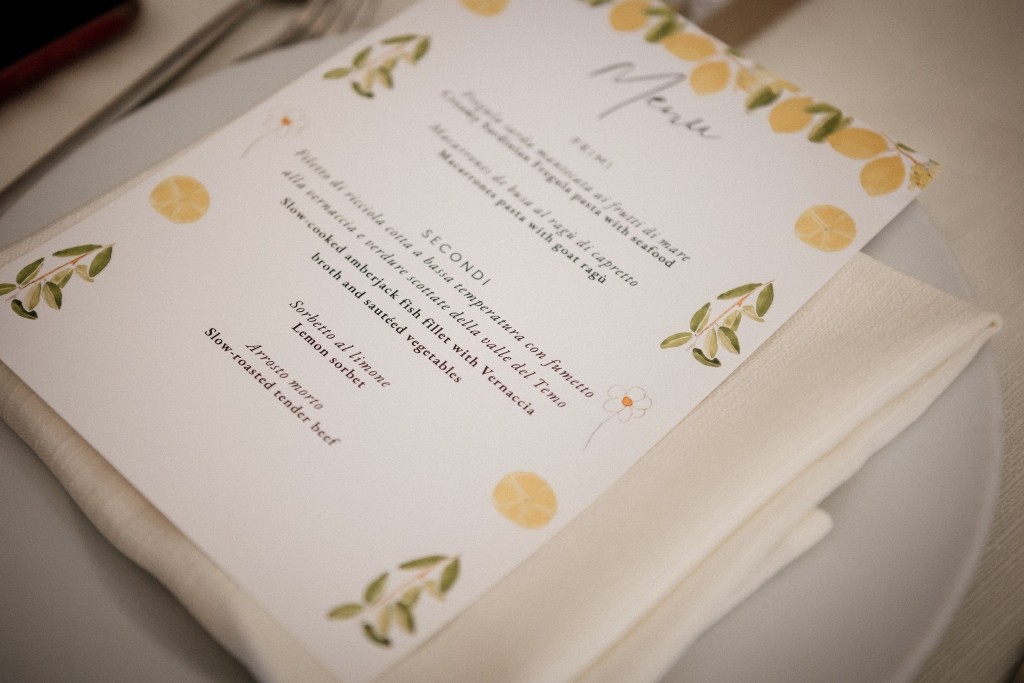 Menu
PRIMI
Fregula sarda mantecata ai frutti di mare
Creamy Sardinian Fregula pasta with seafood
Macarrones de busa al ragù di capretto
Macarrones pasta with goat ragù
SECONDI
Filetto di ricciola cotta a bassa temperatura con fumetto
alla vernaccia e verdure scottate della valle del Temo
Slow-cooked amberjack fish fillet with Vernaccia
broth and sautéed vegetables
Sorbetto al limone
Lemon sorbet
Arrosto morto
Slow-roasted tender beef